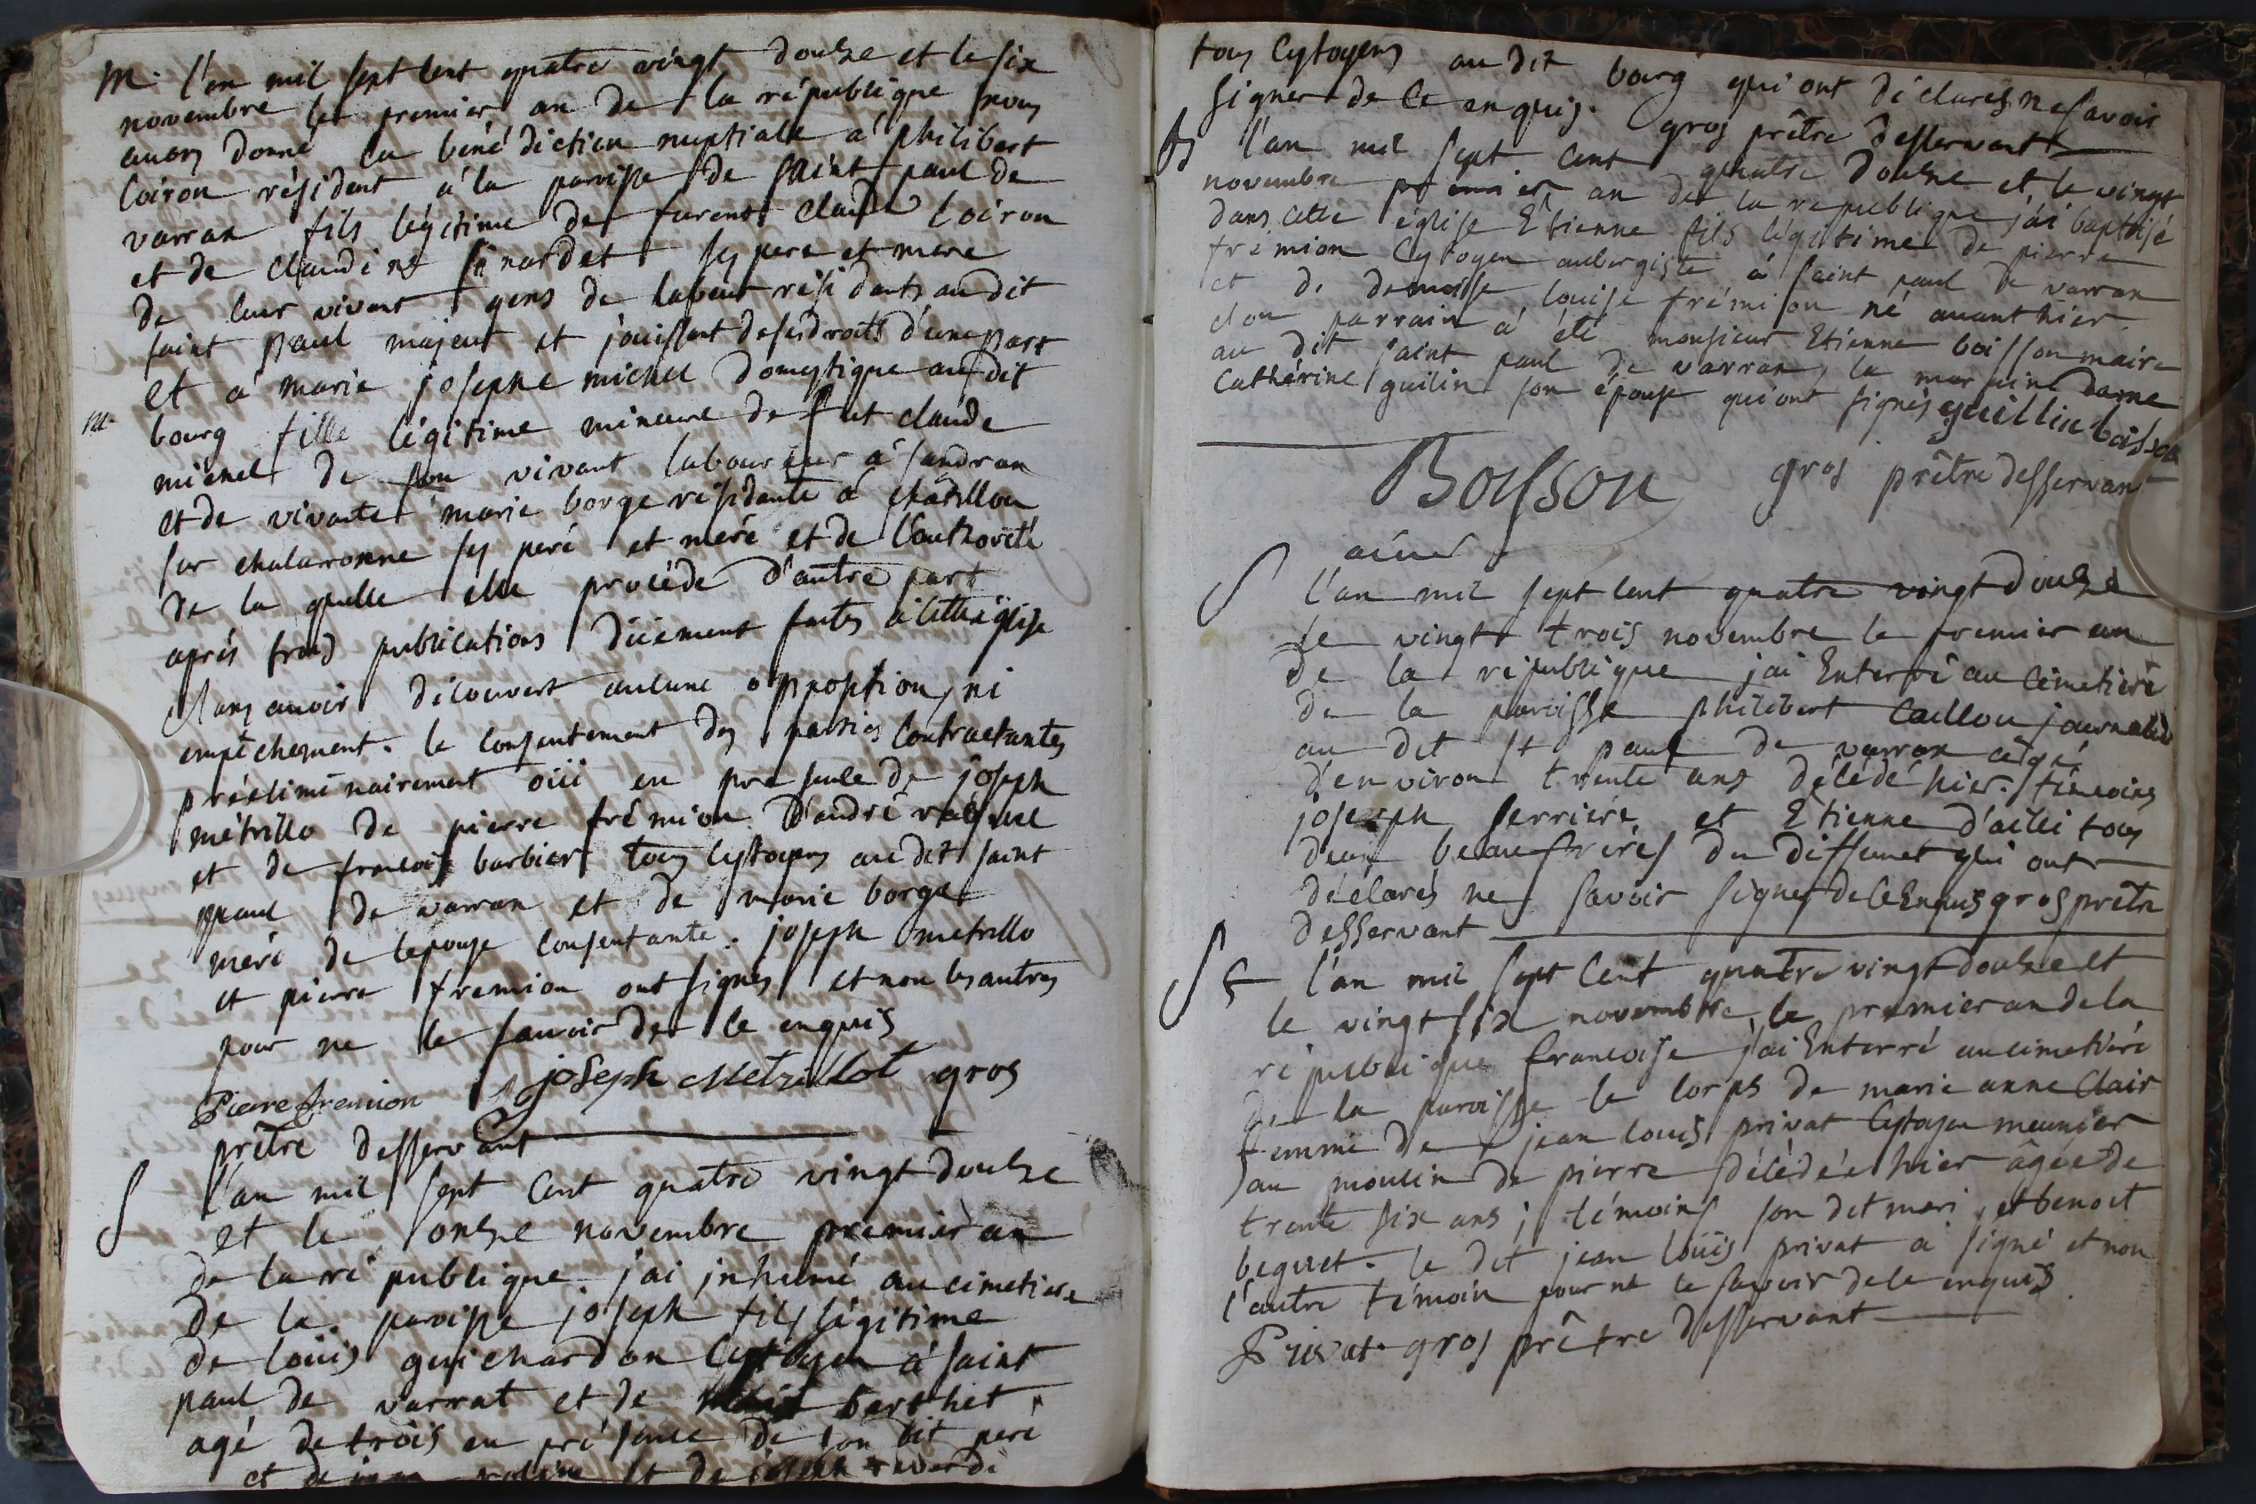 M. l'en mil sept cent quatre vingt doulze et le six
novembre le premier an de la république nous
avons donné la bénédiction nuptiale á philibert
Loiron résident á la paroisse de saint paul de
varran fils légitime de furent claude Loiron
et de claudine sinardet ses pere et mere
de leur vivant gens de labeur résidants au dit
saint paul majeur et jouissant de ses droits d'une part
et á marie josephe michel domestique au dit
M. bourg fille légitime mineure de fut claude
michel de son vivant laboureur á sandran
et de vivante marie borge résidante á châtillon
sur chalaronne ses peré et meré et de l'authorité
de la quelle elle procéde d'autre part
aprés trois publications düement faites á cette église
sans avoir découvert aulune opposition, ni
empêchement. le consentement des parties contractantes
préliminairement oüi en presence de joseph
métrillo de pierre frémion d'andré
et de francois barbier tous cytoyens au dit saint
paul de varran et de marie borge
meré de lepouse consentante. joseph metrillo
et pierre fremion ont signés et non les autres
pour ne le savoir de ce enquis
Pierre fremion joseph Metrillot gros
prêtre desservant
S l'an mil sept cent quatre vingt doulze
et le onlze novembre premier an
de la république j'ai jnhumé au cimetiere
de la paroisse joseph fils légitime
de loüis guichardon Cytoyen á saint
paul de varrat et de barthet
agé de trois en présence de son dit peré
et de et de joseph
tous Cytoyens au dit bourg qui ont déclarés ne savoir
signer de ce enquis. gros prêtre desservant
B l'an mil sept cent quatre doulze et le vingt
novembre premier an de la republique j'ai baptisé
dans cette église Etienne fils légitime de pierre
frémion Cytoyen aubergiste á saint paul de varran
et de demoiselle louise frémion né avant hier
son parrain á été monsieur Etienne boisson maire
au dit saint paul de varran, la marraine dame
Cathérine guilin son épouse qui ont signés guillin boisson
Boisson gros prêtre desservant
S l'an mil sept cent quatre vingt doulze
le vingt trois novembre le premier an
de la république j'ai Enterré au cimetieré
de la paroisse philibert caillou journalier
au dit st paul de varran agé
d'environ trente ans décédé hier. témoins
joseph ferriére et Etienne d'ailli tous
deux beaufréres du deffunct qui ont
déclarés ne savoir signer de ce Enquis gros prêtre
desservant
S l'an mil sept cent quatre vingt doulze et
le vingt six novembre le premier an de la
république francoise j'ai Enterré au cimetiéré
de la paroisse le corps de marie anne Clair
femme de jean louis privat Cytoyen meunier
au moulin de pierre décédée hier âgée de
trente six ans; témoins son dit mari, et benoit
beguet. le dit jean loüis privat a signé et non
l'autre témoin pour ne le savoir de ce enquis
Privat. gros prêtre desservant